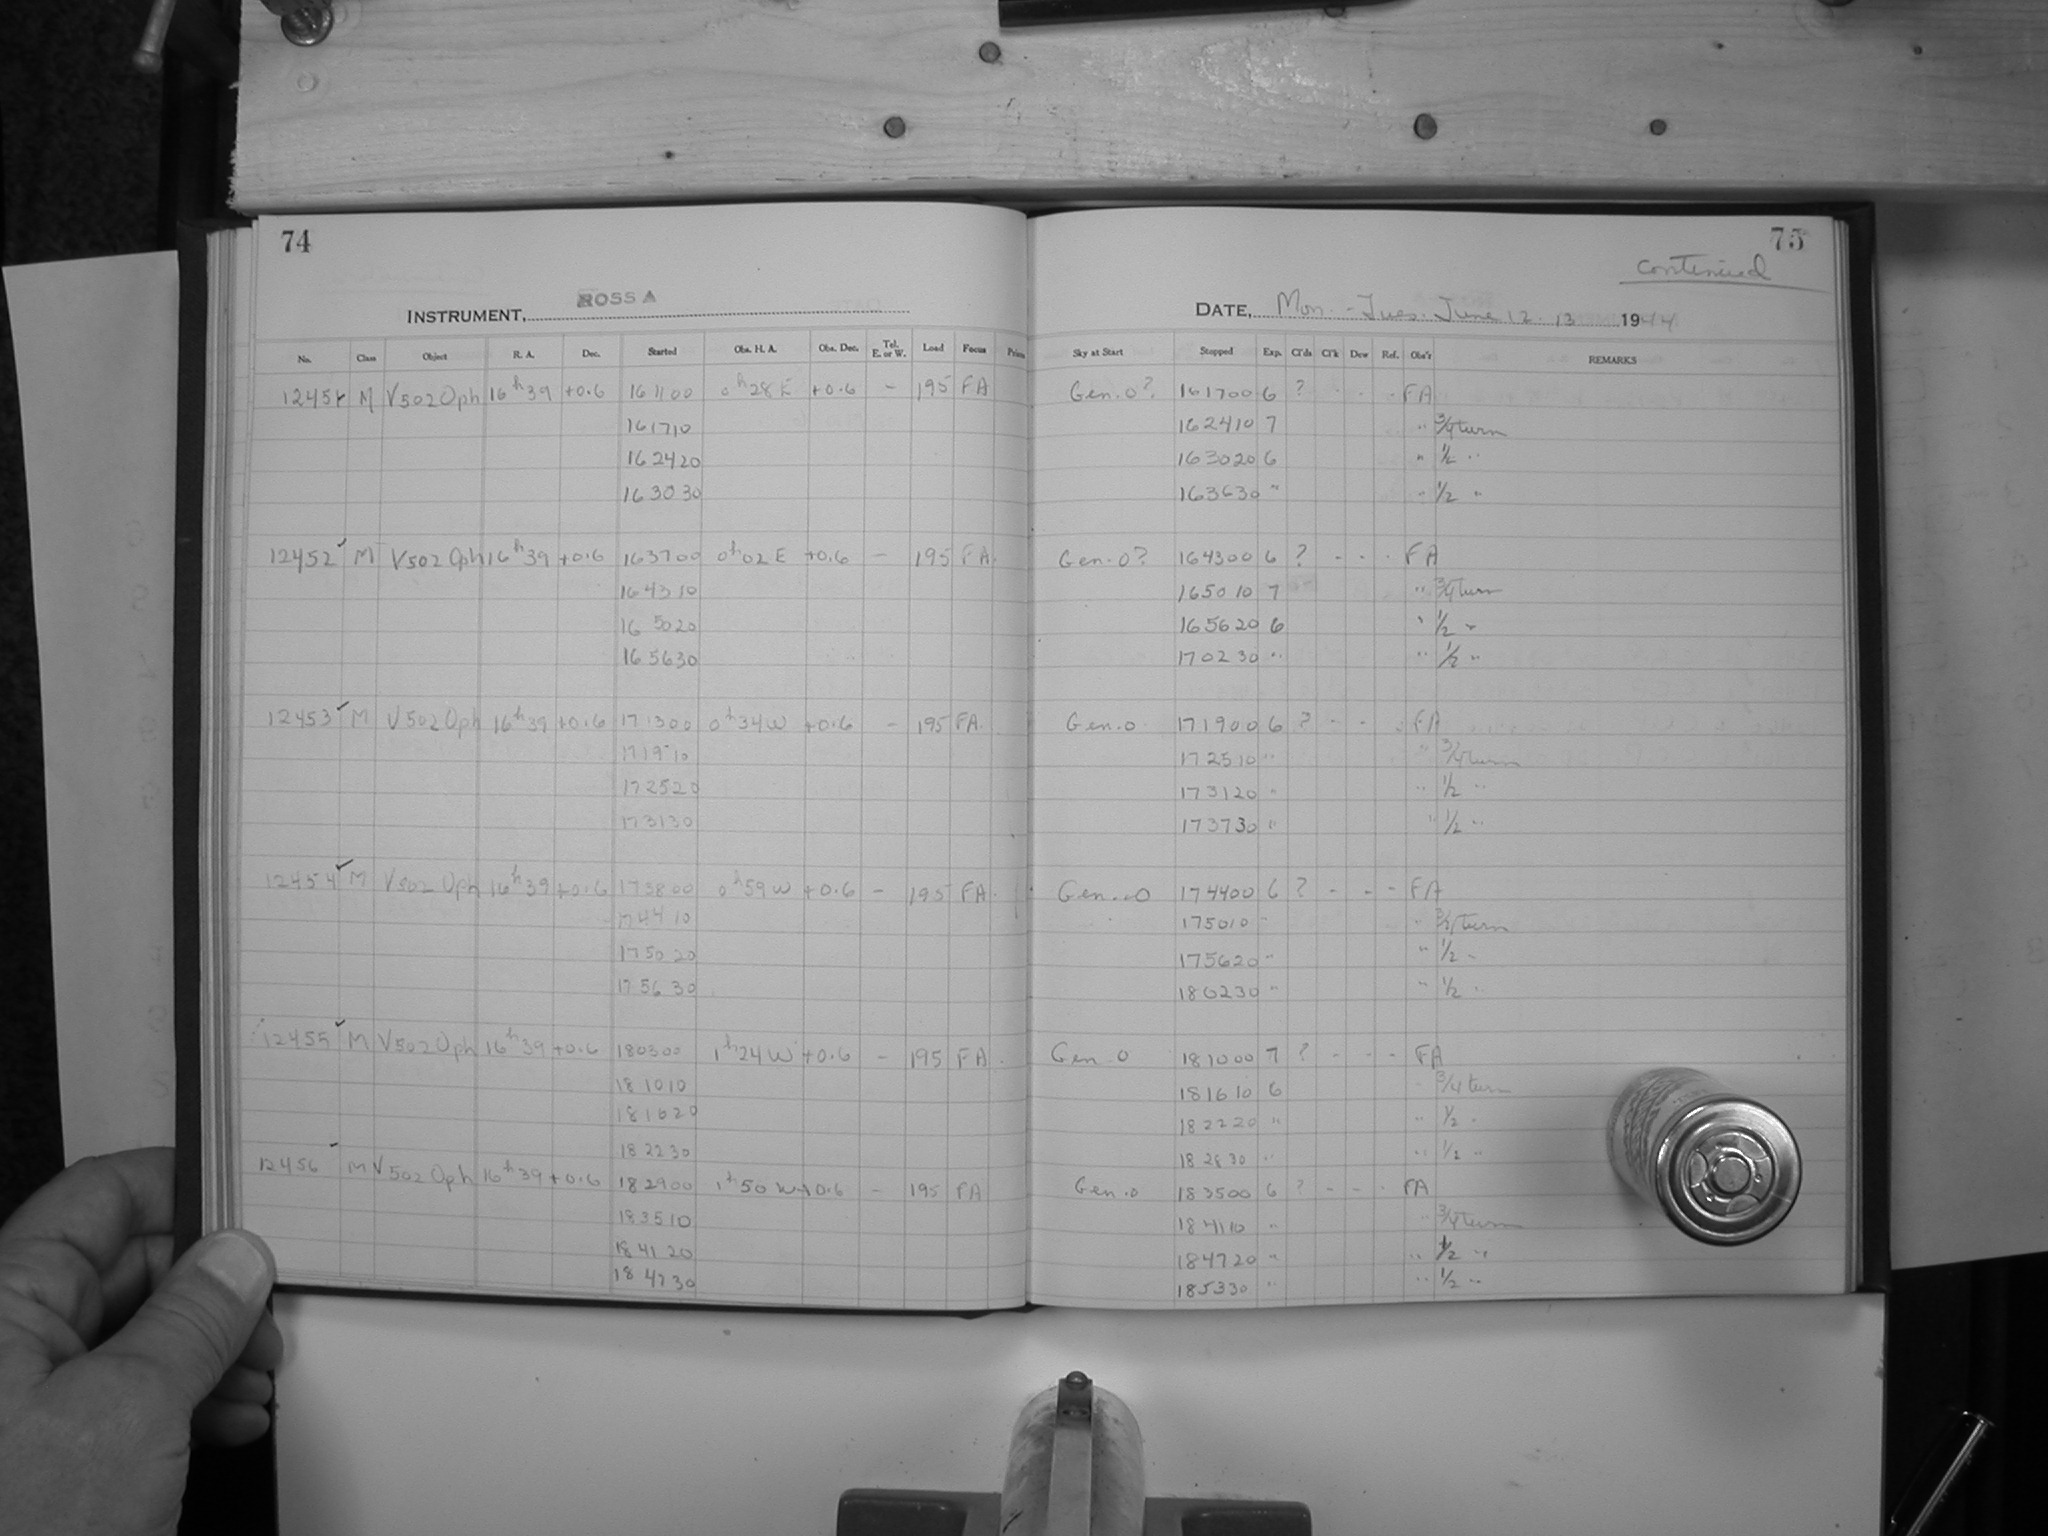 74
INSTRUMENT, ROSS A
No. Class Object R. A. Dec. Started Obs. H. A. Obs. Dec. Tel. E. or W. Load Focus Prism
12451 M V502 Oph 16h39 +0.6 161100 0h28 E +0.6 - 195 FA
161710
162420
163030
12452 M V502 Oph 16h39 +0.6 163700 0h02 E +0.6 - 195 FA.
164310
165020
165630
12453 M V502 Oph 16h39 +0.6 171300 0h34 W +0.6 - 195 FA.
171910
172520
173130
12454 M V502 Oph 16h39 +0.6 173800 0h59 W +0.6 - 195 FA.
174410
175020
175630
12455 M V502 Oph 16h39 +0.6 180300 1h24 W +0.6 - 195 FA.
181010
181620
182230
12456 M V502 Oph 16h39 +0.6 182900 1h50 W +0.6 - 195 FA
183510
184120
184730
75
continued
DATE, Mon. - Tues. June 12 13 1944
Sky at Start Stopped Exp. Cl'ds Cl'k Dew Ref. Obs'r REMARKS
Gen. 0? 161700 6 ? - - - FA
162410 7 " 3/4 turn
163020 6 " 1/2 "
163630 " " 1/2 "
Gen. 0? 164300 6 ? - - - FA
165010 7 " 3/4 turn
165620 6 " 1/2 "
170230 " " 1/2 "
Gen. 0 171900 6 ? - - - FA
172510 " " 3/4 turn
173120 " " 1/2 "
173730 " " 1/2 "
Gen. 0 174400 6 ? - - - FA
175010 " " 3/4 turn
175620 " " 1/2 "
180230 " " 1/2 "
Gen. 0 181000 7 ? - - - FA
181610 6 " 3/4 turn
182220 " " 1/2 "
182830 " " 1/2 "
Gen. 0 183500 6 ? - - - FA
184110 " " 3/4 turn
184720 " " 1/2 "
185330 " " 1/2 "